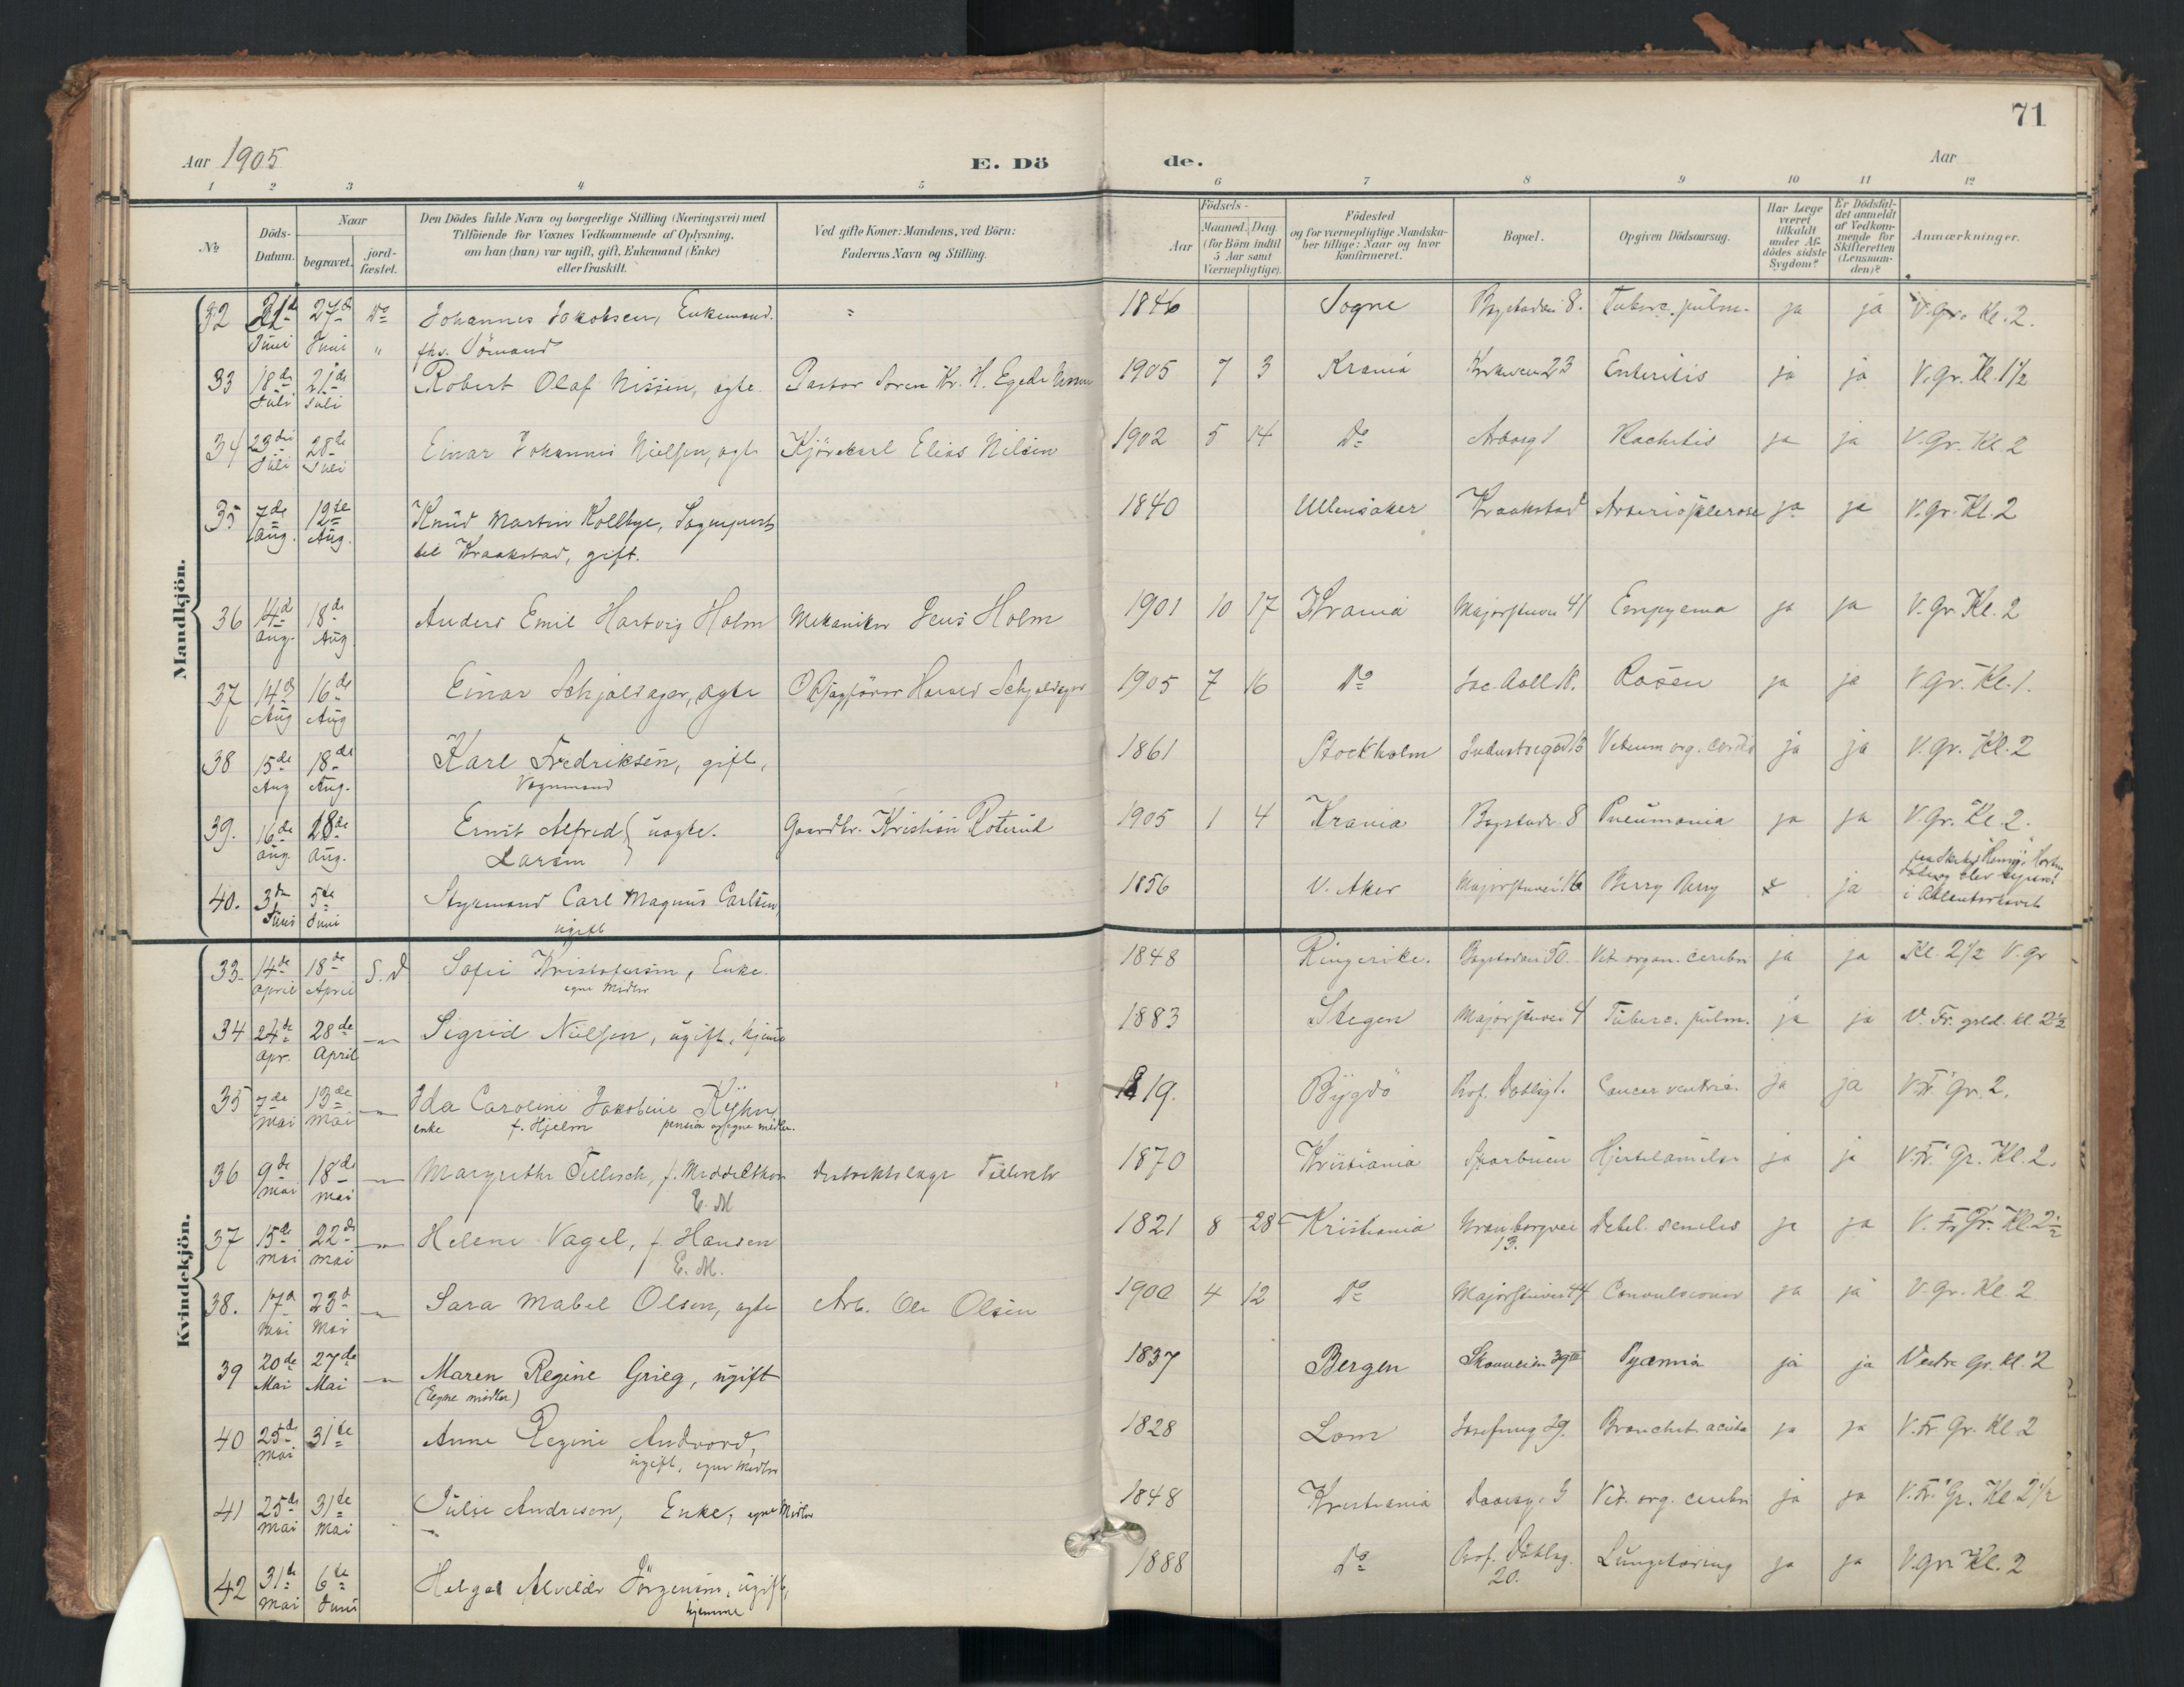 71
Aar 1905
E. Dö
de.
Aar
1 2 3 4 5 6 7 8 9 10 11 12
No
Döds-Datum.
Naar
begravet.
jord-fæstet.
Den Dödes fulde Navn og borgerlige Stilling (Næringsvei) med
Tilföiende for Voxnes Vedkommende af Oplysning,
om han (hun) var ugift, gift, Enkemand (Enke)
eller fraskilt.
Ved gifte Koner: Mandens, ved Börn:
Faderens Navn og Stilling.
Födsels-
Aar
Maaned. Dag.
(for Börn indtil
5 Aar samt
Værnepligtige).
Födested
og for værnepligtige Mandska-
ber tillige: Naar og hvor
konfirmeret.
Bopæl.
Opgiven Dödsaarsag.
Har Læge
været
tilkaldt
under Af-
dödes sidste
Sygdom?
Er Dödsfal-
det anmeldt
af Vedkom-
mende for
Skifteretten
(Lensman-
den)?
Anmærkninger.
Mandkjön.
32 27de Do Johannes Jakobsen, Enkemand. 1846 Sogne 8. Tuberc. pulm. ja ja V. gr. Kl. 2.
Juni Juni " fhv. Sömand
33 18de 21de Robert Olaf Nissen, ægte Pastor Soren Kr. H. Egede Nissen 1905 7 3 Krania 23 Enteritis ja ja V. Gr. Kl. 1½
Juli Juli
34 23de 28de Einar Johannes Nielsen, ægte Kjörekarl Elias Nilsen 1902 5 14 Do Rachitis ja ja V. Gr. Kl. 2
Juli Juli
35 7de 12te Knud Martin Kollbye, Sogneprest 1840 Ullensaker Kraakstad Arteriosklerose ja ja V. gr. Kl. 2
Aug. Aug. til Kraakstad, gift.
36 14de 18de Anders Emil Hartvig Holm Mekaniker Jens Holm 1901 10 17 Krania Majorstuvei 41 Empyema ja ja V. Gr. Kl. 2
Aug. Aug
37 14de 16de Einar Schjoldager, ægte Harald Schjoldager 1905 7 16 Do Rosen ja ja V gr. Kl. 1.
Aug Aug
38 15de 18de Karl Fredriksen, gift, 1861 Stockholm Industrigd 15 Vitium org. cordis ja ja V. gr. Kl. 2
Aug Aug. Vognmand
39. 16de 28de Ernst Alfred uægte. Gaardbr. Kristian Roterud 1905 1 4 Krania 8 Pneumonia ja ja V. Gr. Kl. 2.
Aug. Aug. Larsen
40. 3die 5te Styrmand Carl Magnus Carlsen, 1856 V. Aker Majorstuvei 16 Berry Berry ja
Juni Juni ugift
i Atlanterhavet
Kvindekjön.
33 14de 18de S. d Sofie Kristofersen, Enke 1848 Ringerike. 50. Vit. organ. cerebri ja ja Kl. 2½ V. gr
April April egne Midler
34 24de 28de —"— Sigrid Nielsen, ugift, hjeme 1883 Stegen Majorstuvei 4 Tuberc. pulm. ja ja V. Fr. grld. kl. 2½
Apr. April
35 7de 13de —"— Ida Caroline Jakobine Kyhn 1819. Bygdö Prof. Dahlsg 1. Cancer ventric. ja ja V. Fr. gr. 2.
Mai Mai enke f. Hjelm pension og egne midler.
36 9de 18de —"— Margrethe Tillisch, f. Middelthon Distriktslæge Tillisch 1870 Kristiania Sparbuen ja ja V. Fr. Gr. Kl. 2.
Mai Mai E. M
37 15de 22de —"— Helene Vagel, f. Hansen 1821 8 28 Kristiania Uranborgvei Debil. senilis ja ja V. Fr. Gr. Kl. 2½
Mai Mai E. M. 13.
38. 17de 23de —"— Sara Mabel Olsen, ægte Arb. Ole Olsen 4 12 Do Majorstuvei 44 Convulsioner ja ja V. Gr. Kl. 2
Mai Mai
39 20de 27de —"— Maren Regine Grieg, ugift 1837 Bergen 39 III Pyæmia ja ja Vestre Gr. kl. 2
Mai Mai (Egne midler)
40 25de 31te Anne Regine Andvord, 1828 Lom Josefinesg 39. Bronchit. acuta ja ja V. Fr. Gr. Kl. 2
Mai ugift, egne Midler
41 25de 31te Julie Andresen, Enke, egne Midler 1848 Kristiania Daasg. 5 Vit. org. cerebri ja ja V. Fr. Gr. Kl 2½
Mai Mai
42 31te 6te Helga Alvilde Jörgensen, ugift, 1888 Do Prof. Dahlsg. Lungetæring ja ja V. gr. Kl. 2
Mai Juni hjemme 20.